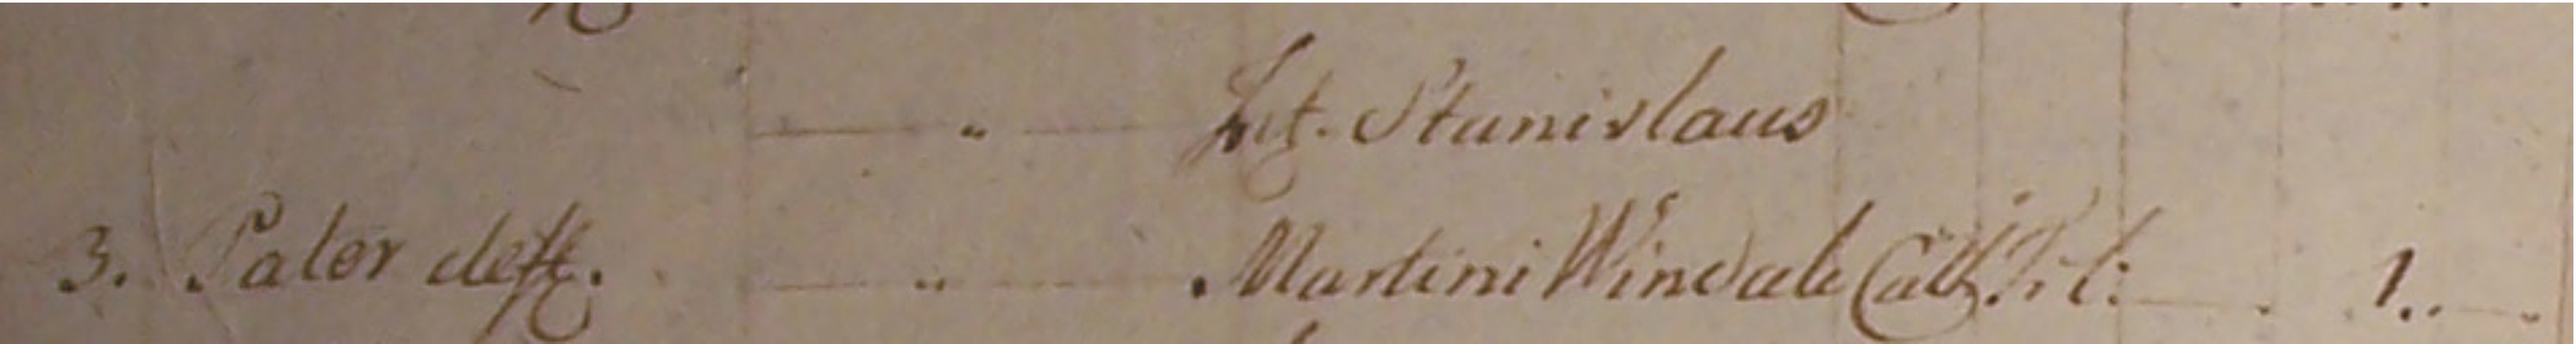 " Stanislaus
3. Pater deft. " Martini Windak Cath. fil: 1..